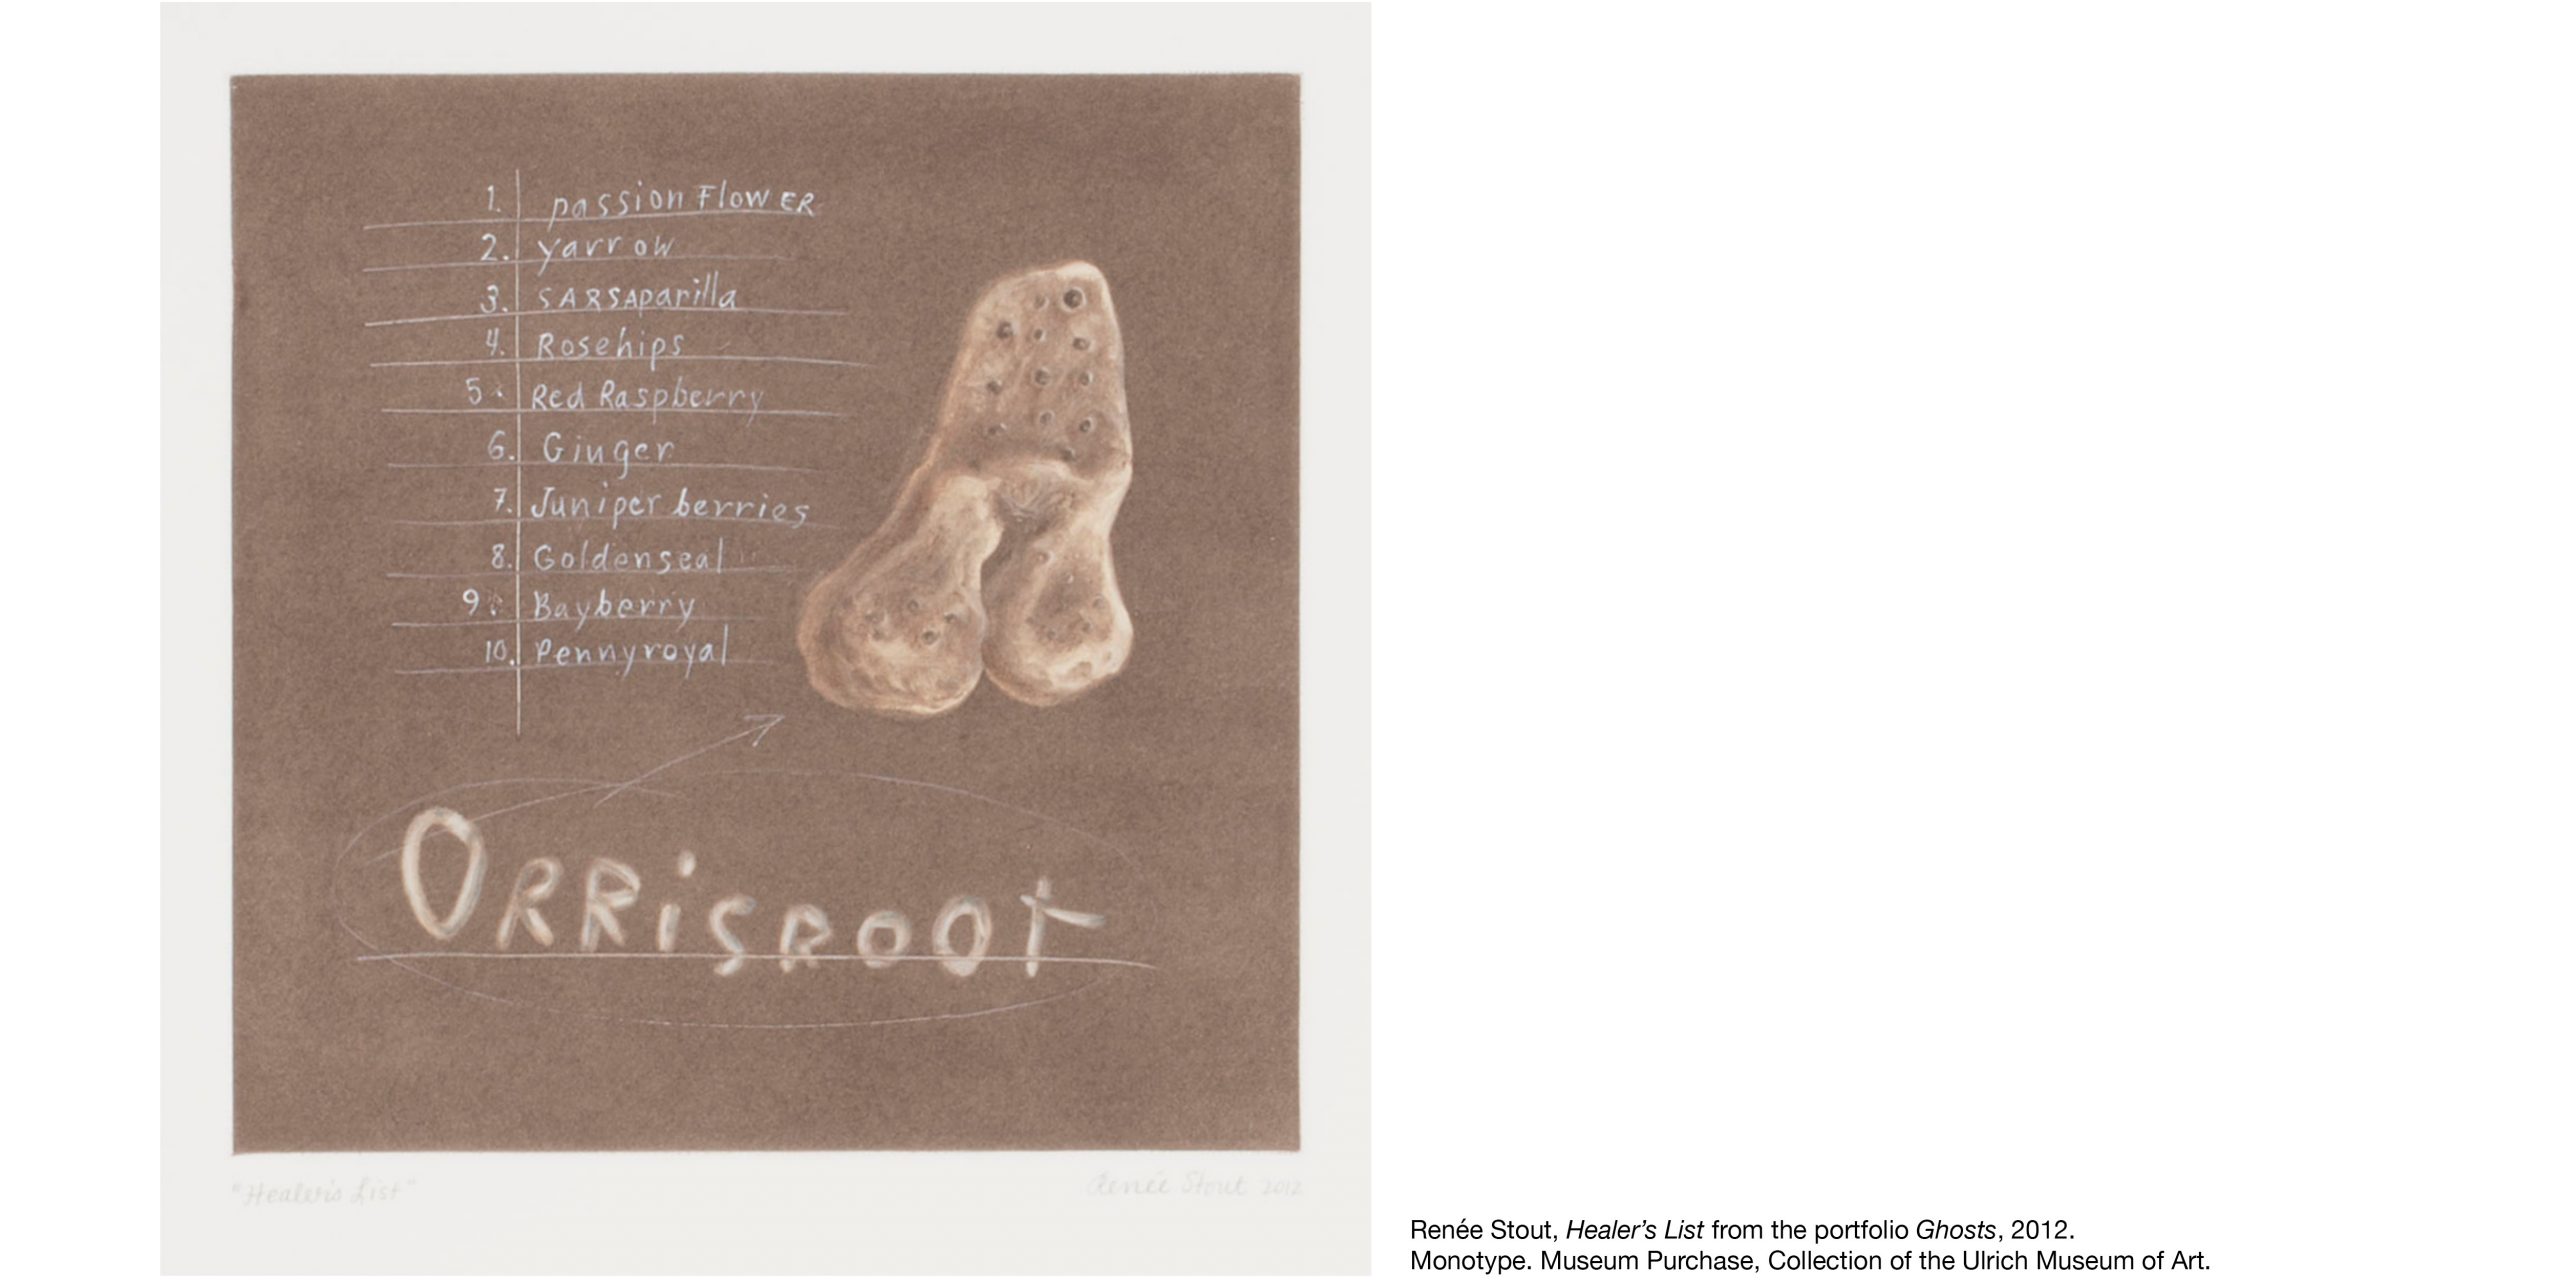 1. passion FlowER
2. yarrow
3. SARSAparilla
4. Rosehips
5. Red Raspberry
6. Ginger
7. Juniper berries
8. Goldenseal
9. Bayberry
10. Pennyroyal
ORRiSROOt
"Healer's List"
Renée Stout 2012
Renée Stout, Healer’s List from the portfolio Ghosts, 2012.
Monotype. Museum Purchase, Collection of the Ulrich Museum of Art.